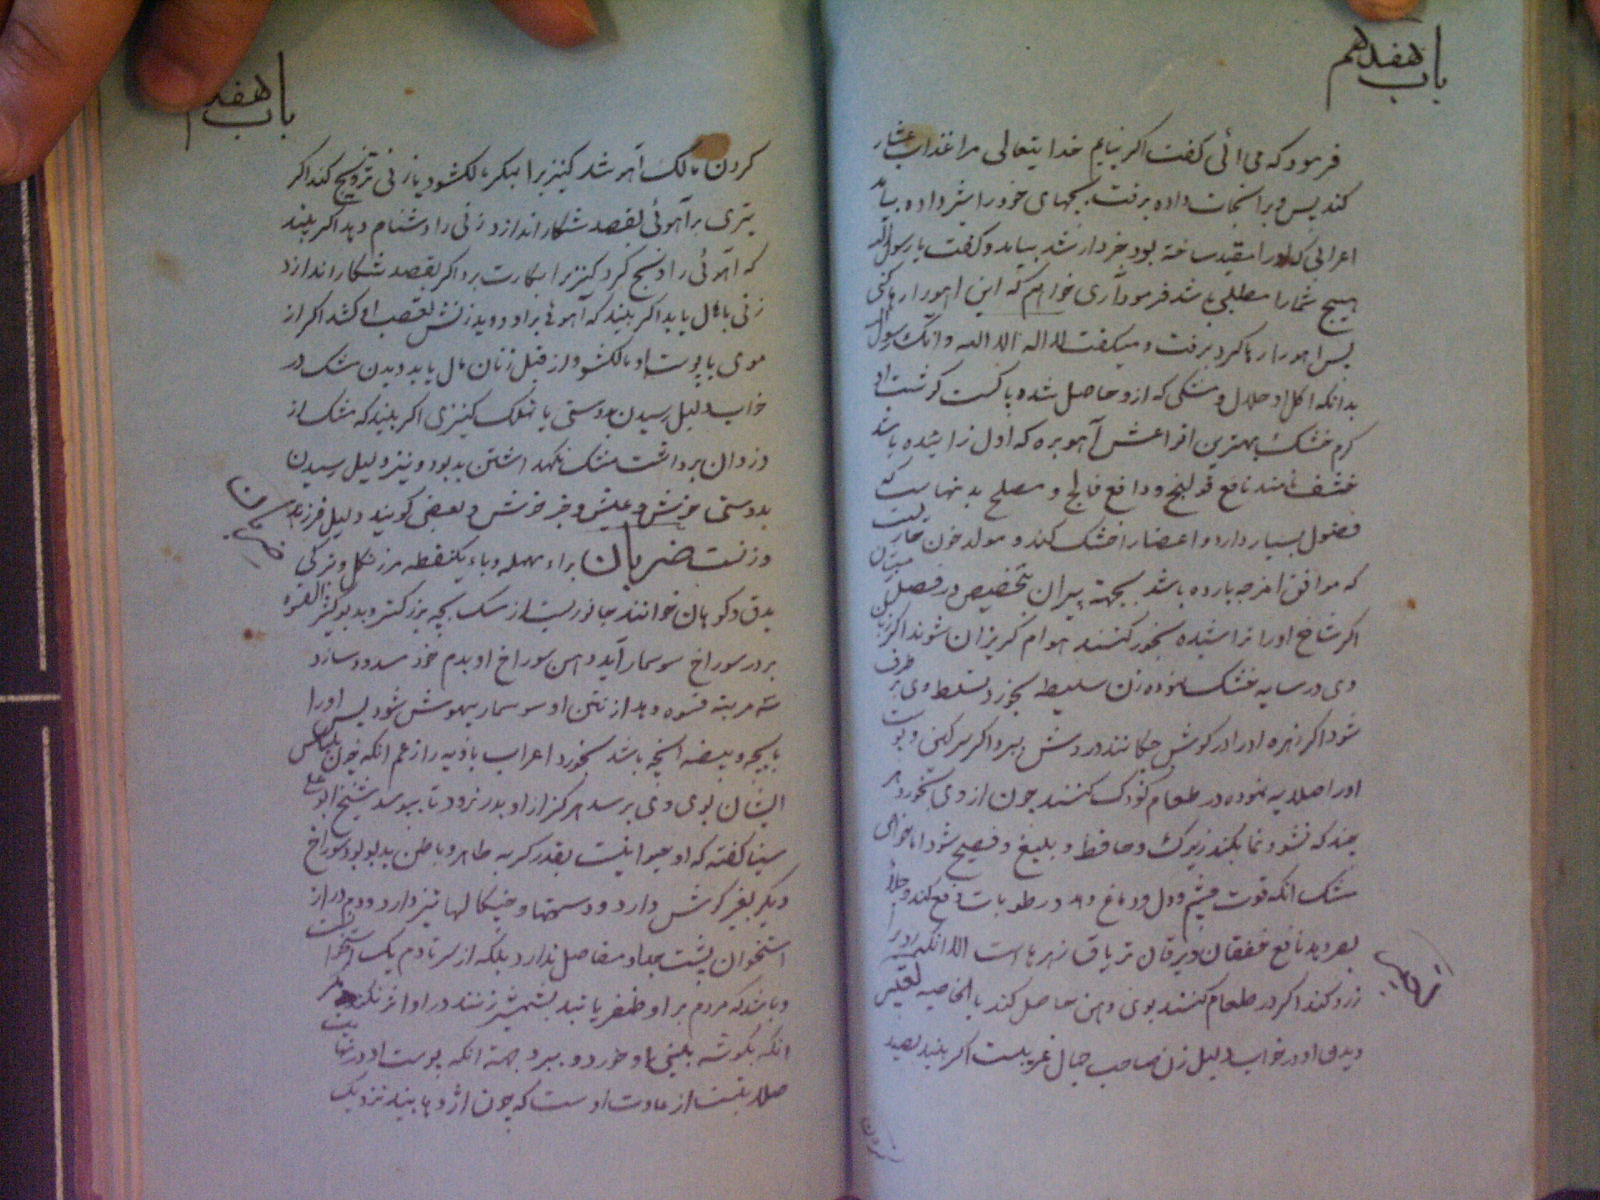 باب هفدهم
فرمود که می آئی گفت اگر نیایم خدایتعالی مرا عذاب عشار
کند پس ویرا نجات داده برفت بچهای خود را شیر داده بیامد
اعرابی که او را مقید ساخته بود خبردار شد بیامد و گفت یا رسول الله
هیچ شما را مطلبی باشد فرمود آری خواهم که این آهو را رها کنی
پس آهو را رها کرد برفت و میگفت لا اله الا الله و انک رسول الله
بدانکه اکل او حلال و مشکی که ازو حاصل شده پاکست گوشت او
گرم خشک بهترین انواعش آهو بره که اول زائیده باشد
خشف نامند نافع قولنج و دافع فالج و مصلح بدنهاست که
فضول بسیار دارد و اعضا را خشک کند و مولد خون
که موافق امزجه بارده باشد بجهة پیران بتخصیص در فصل
اگر شاخ او را تراشیده بخور کنند هوام گریزان شوند اگر زبان
وی در سایه خشک نموده زن سلیطه بخورد تسلط وی بر طرف
شود اگر زهره او را در گوش چکانند دردش ببرد اگر سرگین و پوست
او را صلایه نموده در طعام کودک کنند چون از وی بخورد هر
چند که نشو و نما بکند زیرک و حافظ و بلیغ و فصیح شود اما خواص
مشک آنکه قوت چشم و دل و دماغ دهد و رطوبات دفع کند و جلای
بصر دهد نافع خفقان و یرقان تریاق زهرهاست الا آنکه رو را
زرد کند اگر در طعام کنند بوی دهن حاصل کند بالخاصیه
دیدن او در خواب دلیل زن صاحب جمال غریبست اگر بیند بصید
باب هفد
کردن مالک آهو شد کنیز برا بمکر مالک شود یا زنی تزویج کند اگر
تیری بر آهوئی بقصد شکار اندازد زنی را دشنام دهد اگر بیند
که آهوئی را ذبح کرد کنیز برا بکارت برد اگر بقصد شکار اندازد
زنی با مال یابد اگر بیند که آهو بر او دوید زنش تعصب او کشد اگر از
موی یا پوست او مالک شود از قبل زنان مال یابد دیدن مشک در
خواب دلیل رسیدن بدوستی یا تملک کنیزی اگر بیند که مشک از
دزدان برداشت مشک نگهداشتن بد بود و نیز دلیل رسیدن
بدوستی خوش و عیش و خبر خوش و بعضی گویند دلیل فرزند
و زنست ضربان براء مهمله و باء یکنقطه
خوانند جانوریست از سک بچه بزرگتر و بدبو
بر در سوراخ سوسمار آید و دهن سوراخ او بدم خود مسدود سازد
سه مرتبه فسوه دهد از نتن او سوسمار بیهوش شود پس او را
با بچه و بیضه آنچه باشد بخورد اعراب بادیه را زعم آنکه چون بلباس
ایشان بوی وی برسد هرگز از او بدر نرود تا بپوسد شیخ ابو علی
سینا گفته که او حیوانیست بقدر گربه ظاهر و باطن بدبو بود سوراخ
دیگر بغیر گوش دارد و دستها و چنگالها تیز دارد و دم دراز
استخوان پشت جدا و مفاصل ندارد بلکه از سر تا دم یک استخوان
و باشد که مردم بر او ظفر یابند بشمشیر زنند در او اثر نکند
آنکه بگوشه بینی او خورد و بمیرد جهة آنکه پوست او در نهایت
صلابتست از عادت اوست که چون اژدها بیند نزدیک
ضربان